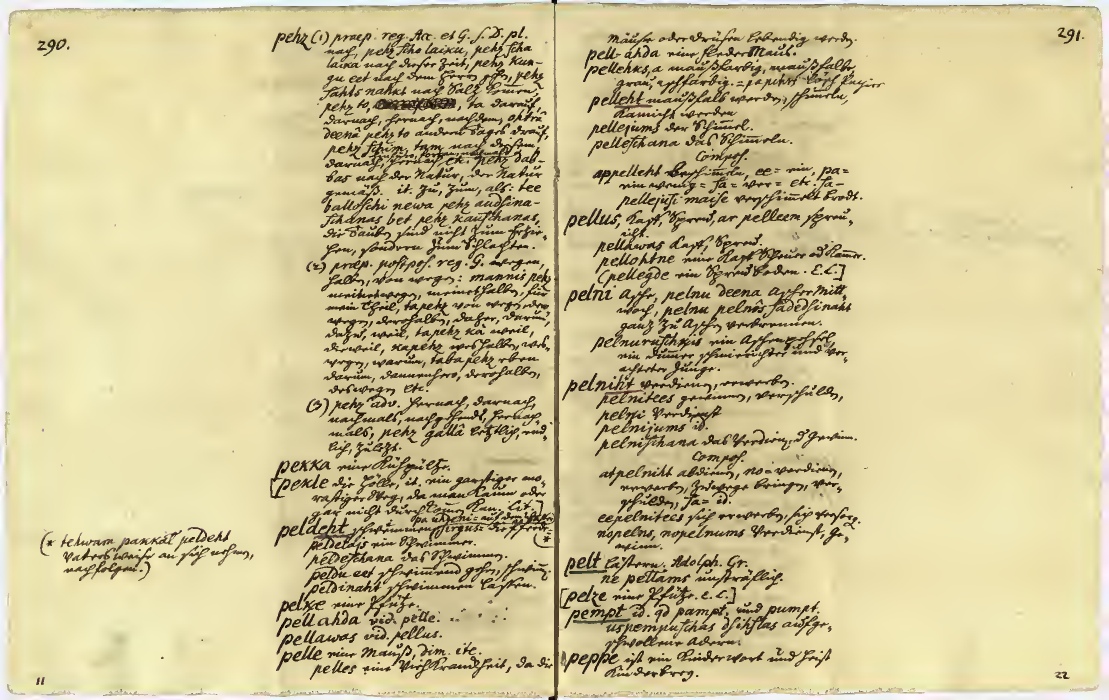 290.
pehz (1) præp. reg. Acc. et G. S. D. pl.
nach, pehz scho laiku, pehz scha
laika nach dieser Zeit, pehz Kun-
gu eet nach dem Herrn gehn, pehz
Sahls nahkt nach Saltz kommen,
pehz to, ta darauf,
darnach, hernach, nachdem, ohtrâ
deenâ pehz to andern Tages drauf,
pehz schim, tam nach diesem
darnach, hernach etc. pehz dab-
bas nach der Natur, der Natur
gemäß. it. zu, zum, als: tee
balloschi newa pehz audsina-
schanas bet pehz kauschanas,
die Tauben sind nicht zum Erzie-
hen, sondern zum Schlachten.
(2) præp. postpos. reg. G. wegen,
halben, von wegen: mannis pehz
meinetwegen, meinethalben, für
mein Theil, ta pehz von wegen des-
wegen, derohalben, daher, darum,
dazu, weil, tapehz ka weil,
dieweil, kapehz weshalben, wes-
wegen, warum, tabapehz eben
darum, dannenhero, derohalben,
deswegen etc.
(3) pehz adv. hernach, darnach,
nachmals, nachgehends, hernach
mals, pehz gallâ letztlich, end-
lich, zuletzt.
pekka eine Kuhpiltze.
[pekle die Hölle, it. ein garstiger mo-
rastiger Weg, da man kaum oder
gar nicht durchkommen kan. Lit.]
peldeht schwimmen
(*
peldetajs ein Schwimmer.
peldeschana das Schwimmen.
peldu eet schwimmend gehen, schwimm.
peldinaht schwimmen lassen.
pelke eine Pfütze.
pell ahda vid. pelle.
pellawas vid. pellus.
pelle eine Mauß, dim. ite.
pelles eine Viehkranckheit, da die
(* tehwam pankâl peldeht
Vatersweise an sich nehmen,
nachfolgen.)
11
291.
Mäuse oder Drüsen lebendig werden.
pell-ahda eine FlederMaus.
pellehks, a maußfarbig, maußfalbe,
grau, eschfarbig. = papihrs Lösch Papier
pelleht maußfalb werden, schimmeln,
kamicht werden
pellejums der Schimmel.
pelleschana das Schimmeln.
Compos.
appelleht beschimmeln, ee= ein, pa=
ein wenig = sa= ver= etc. sa-
pellejusi maise verschimmelt Brodt.
pellus, Kaff, Spreu, ar pelleem spreu-
icht.
pellawas Kaff, Spreu.
pellohtne eine Kaff Scheuer od Kamer.
(pellegde ein Spreu boden. E.L.]
pelni Asche, pelnu deena AscherMitt,
woch, pelnu pelnôs sadedsinaht
ganz zu Aschen verbrennen.
pelnuruschkis ein Aschenpuffel,
ein dumer schmierichter und ver-
achteter Junge.
pelniht verdienen, erwerben.
pelnitees gewinnen, verschulden,
pelni Verdienst
pelnijums id.
pelnischana das Verdienen, d Gewinn.
Compos.
atpelniht abdienen, no= verdienen,
erwerben, zuwege bringen, ver-
schulden, sa= id.
eepelnitees sich erwerben, sich versorg.
nopelns, nopelnums Verdienst, Ge-
winn.
pelt lästern. Adolph. Gr.
ne pellams unsträflich.
[pelze eine Pfütze. E.L.]
pempt id. qd pampt, und pumpt.
uspempuschas dsihslas aufge-
schwollene Adern.
peppe ist ein Kinderwort und heist
Kinderbrey.
22